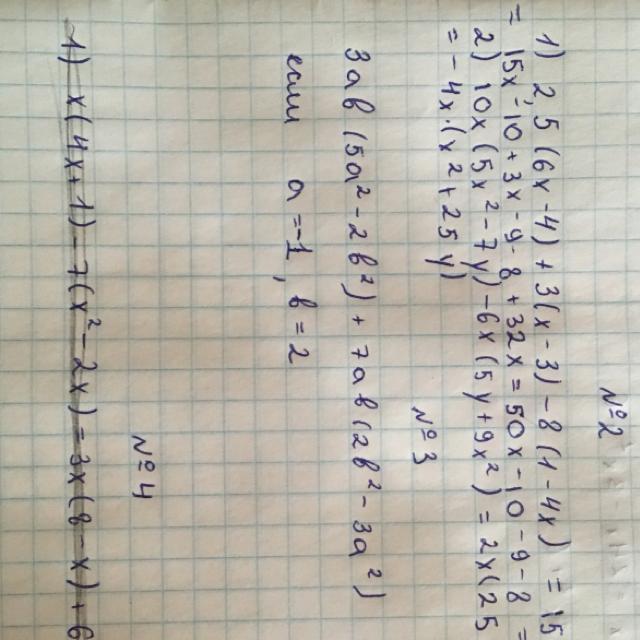 №2
1) 2,5(6x-4)+3(x-3)-8(1-4x) = 15
= 15x-10+3x-9-8+32x=50x-10-9-8 =
2) 10x(5x²-7y)-6x(5y+9x²) = 2x(25
= -4x·(x²+25y)
№3
3ab(5a²-2b²)+7ab(2b²-3a²)
если a=-1, b=2
№4
1) x(4x+1)-7(x²-2x)=3x(8-x)+6